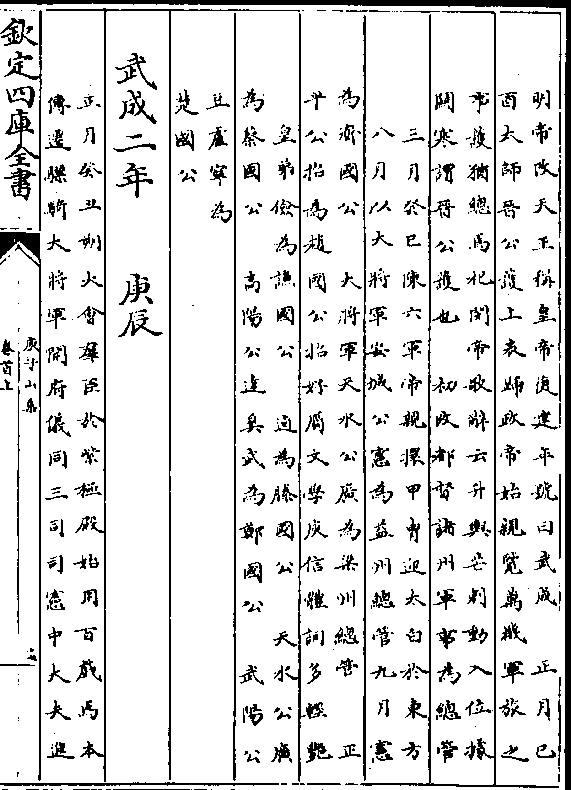 明帝改天王稱皇帝復建年號曰武成　正月己
酉太師晉公護上表歸政帝始親覽萬機軍旅之
事護猶總焉祀閔帝歌辭云升輿芒刺動入位據
關寒謂晉公護也　初改都督諸州軍事為總管
三月癸巳陳六軍帝親擐甲冑迎太白於東方
八月以大將軍安城公憲為益州總管九月憲
為齊國公　大將軍天水公廣為梁州總管　正
平公招為趙國公招好屬文學庾信體詞多輕艷
皇弟儉為譙國公　逌為滕國公　天水公廣
為蔡國公　高陽公達奚武為鄭國公　武陽公
豆盧寧為
楚國公
武成二年　庚辰
正月癸丑朔大會羣臣於紫極殿始用百戲焉本
傳遷驃騎大將軍開府儀同三司司憲中大夫進
欽定四庫全書
庾子山集
卷首上